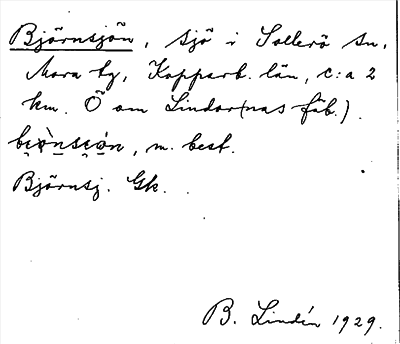 Björnsjön, sjö i Sollerö sn,
Mora tg, Kopparb. län, c:a 2
km. Ö om Lindor(nas fäb.).
, m. best.
Björnsj. Gk.
B. Lindén 1929.